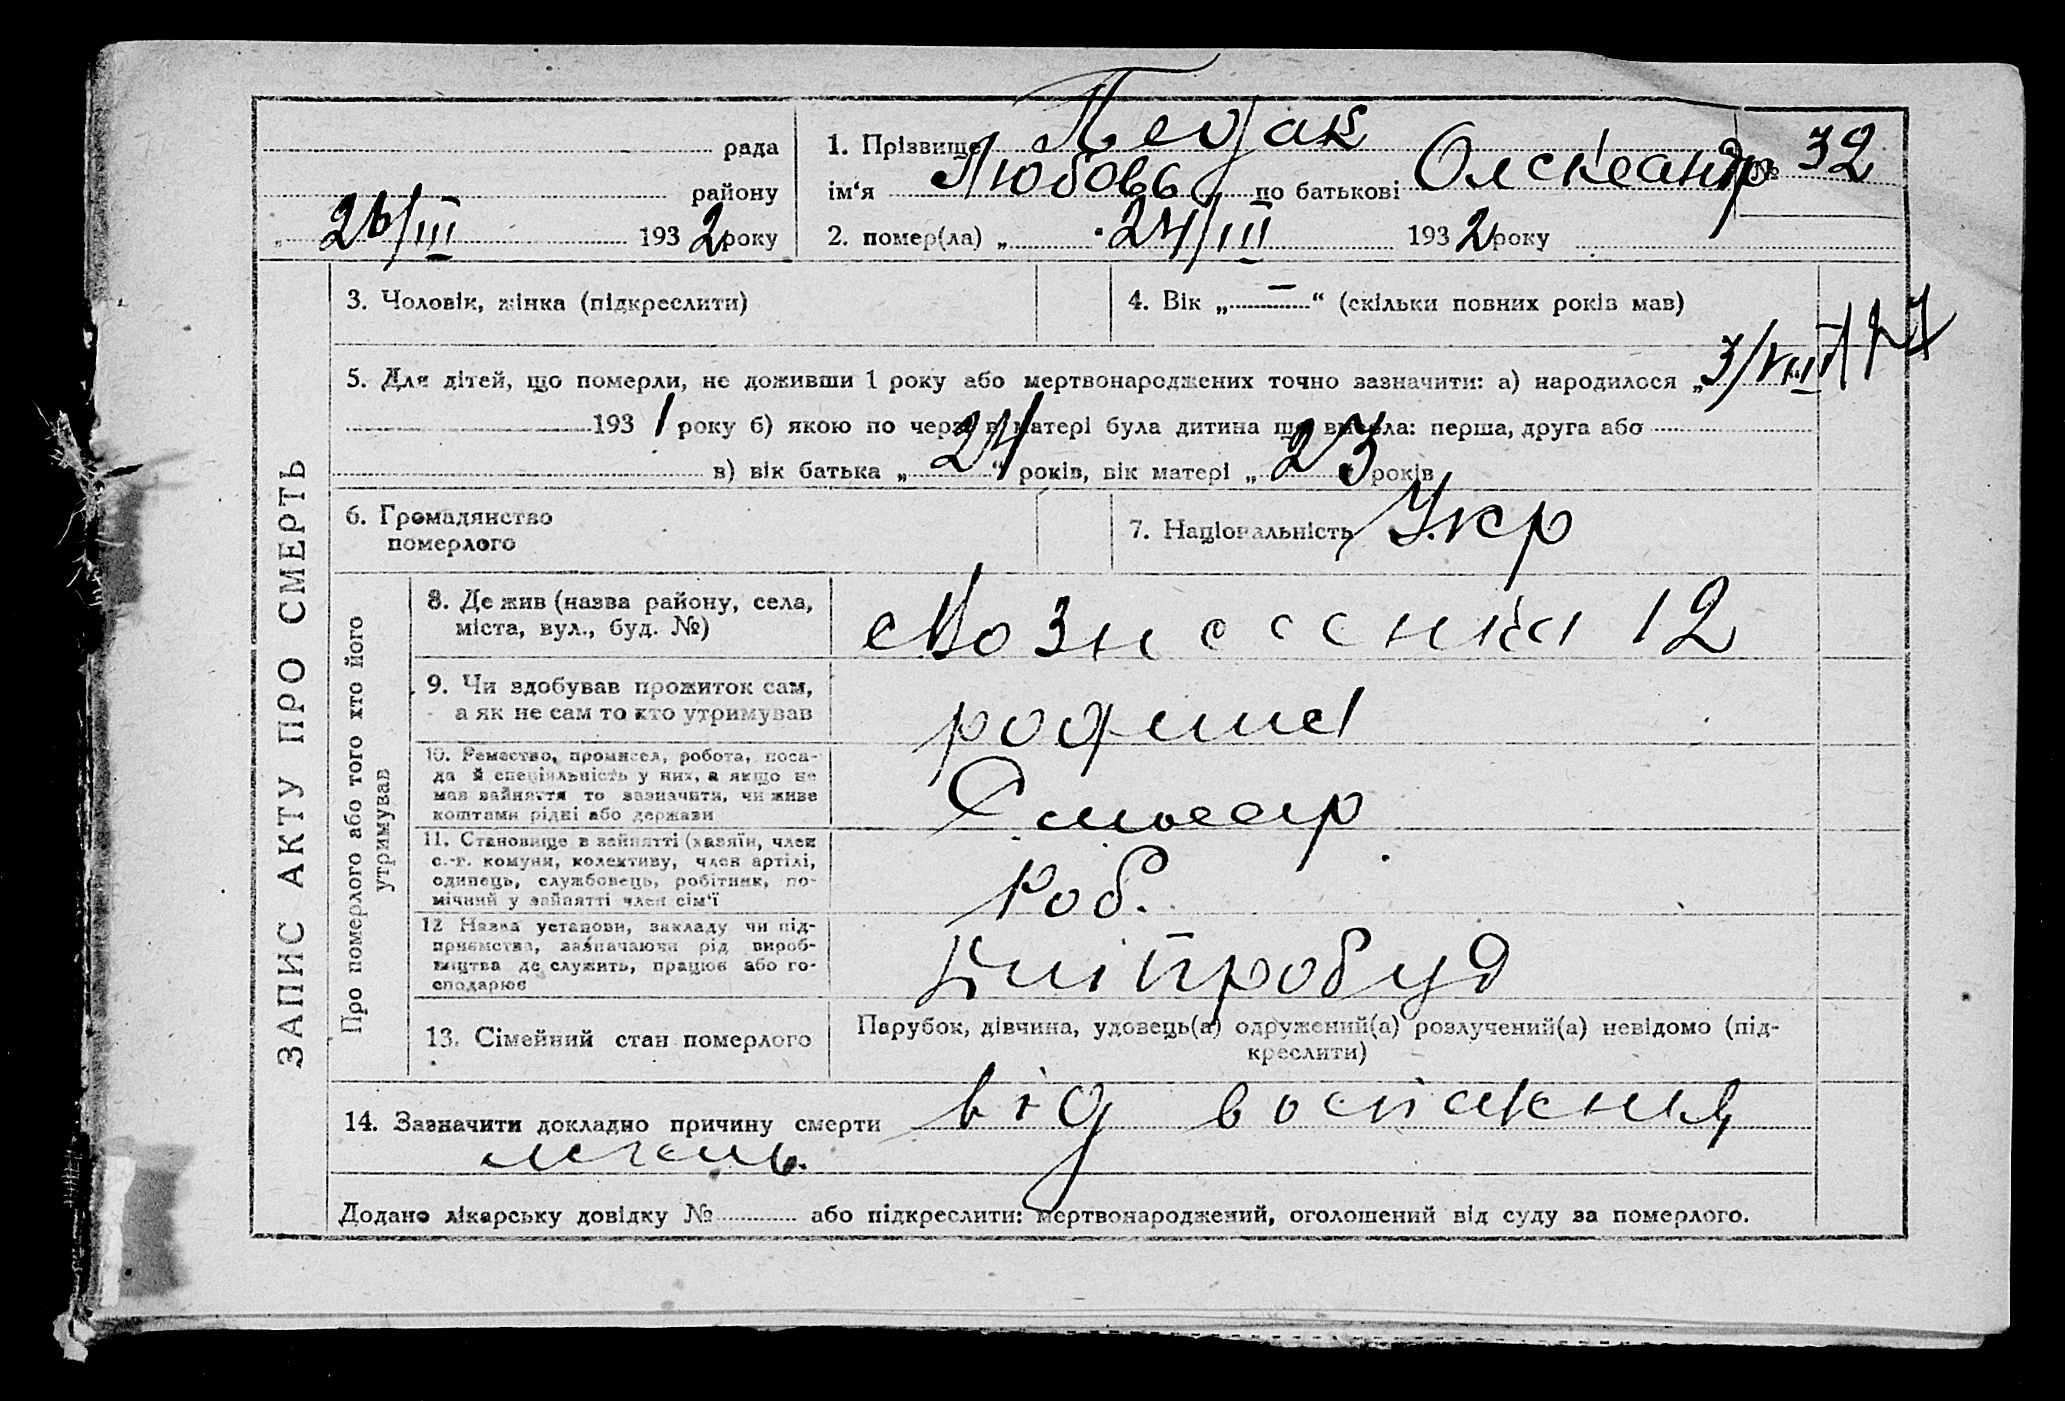 рада
району
26/III 1932 року
1. Прізвище Педак
ім‘я Любовь по батькові Олександр
№ 32
2. помер(ла) „ 24/III 1932 року
ЗАПИС АКТУ ПРО СМЕРТЬ
3. Чоловік, жінка (підкреслити)
4. Вік „ — “ (скільки повних років мав)
5. Для дітей, що померли, не доживши 1 року або мертвонароджених точно зазначити: а) народилося „ 3/VIII
1931 року б) якою по черзі в матері була дитина що вмерла: перша, друга або
в) вік батька „ 24 “ років, вік матері „ 23 “ років
6. Громадянство
померлого
7. Національність Укр
Про померлого або того хто його
утримував
8. Де жив (назва району, села,
міста, вул., буд. №)
Вознесенка 12
9. Чи здобував прожиток сам,
а як не сам то хто утримував
родина
10. Ремество, промисел, робота, поса-
да й спеціяльність у них, а якщо не
мав зайняття то зазначити, чи живе
коштами рідні або держави
11. Становище в зайнятті (хазяїн, член
с.-г. комуни, колективу, член артілі,
одинець, службовець, робітник, по-
мічний у зайнятті член сім‘ї
роб.
12. Назва установи, закладу чи під-
приємства, зазначаючи рід вироб-
ництва де служить, працює або го-
сподарює
Дніпробуд
13. Сімейний стан померлого
Парубок, дівчина, удовець(а) одружений(а) розлучений(а) невідомо (під-
креслити)
14. Зазначити докладно причину смерти від
легень.
Додано лікарську довідку № або підкреслити: мертвонароджений, оголошений від суду за померлого.